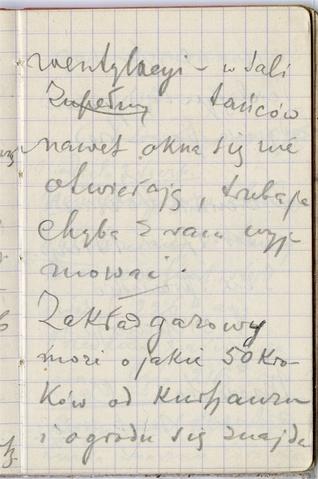 wentylacyi – w sali
Zupełny tańców
nawet okna się nie
otwierają, trzeba je
chyba z ram wyj
mować.
Zakład gazowy
może o jakie 50 kro-
ków od Kurhauzu
i ogrodu się znajdu